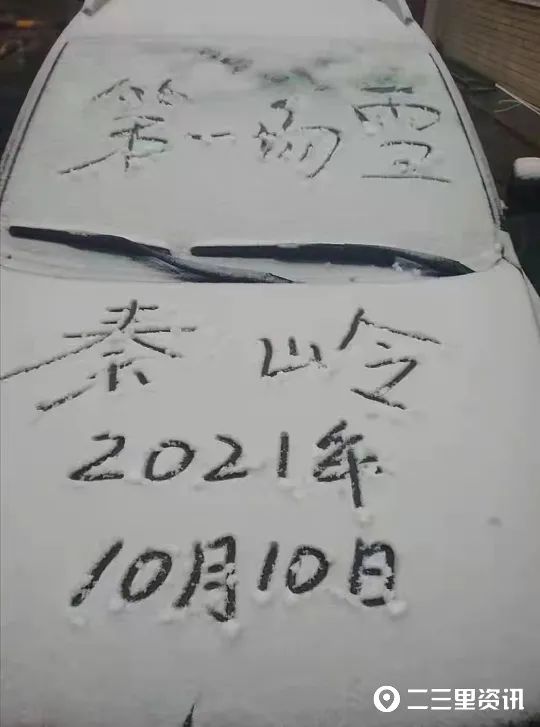 第一场雪
秦岭
2021年
10月10日
二三里资讯